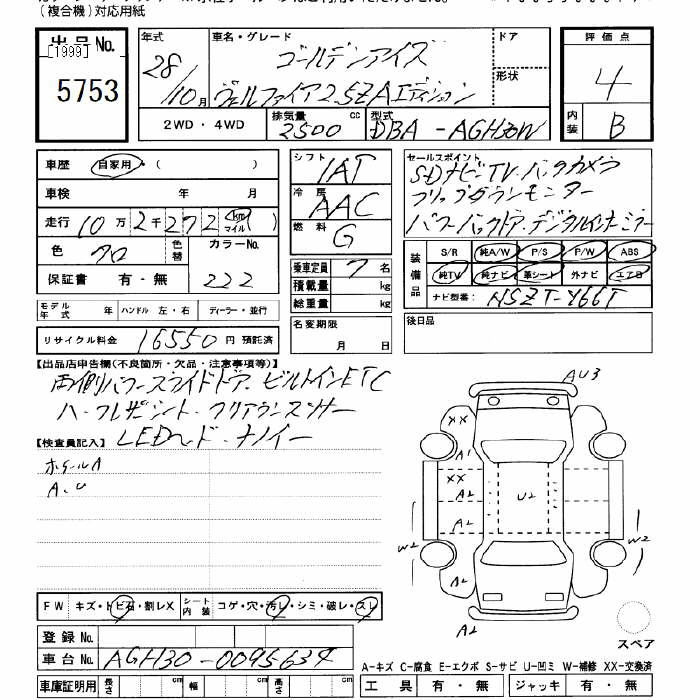 (複合機)対応用紙
出品No.
[1999]
5753
年式 車名・グレード ドア 評価点
28/10月 ゴールデンアイズ
ヴェルファイア2.5ZAエディション 形状 4
2WD・4WD 排気量 2500 cc 型式 DBA-AGH30W 内装 B
車歴 自家用・( )
車検 年 月
走行 10万2千272 km マイル ( )
色 クロ 色替 カラーNo.
保証書 有・無 222
モデル年式 年 ハンドル 左・右 ディーラー・並行
リサイクル料金 16550円 預託済
シフト IAT
冷房 AAC
燃料 G
乗車定員 7名
積載量 kg
総重量 kg
名変期限 月 日
セールスポイント
SDナビ・TV・バックカメラ
フリップダウンモニター
パワーバックドア・デジタルインナーミラー
装備品 S/R 純A/W P/S P/W ABS
純TV 純ナビ 革シート 外ナビ エアB
ナビ型番: NSZT-Y66T
後日品
【出品店申告欄(不良箇所・欠品・注意事項等)】
両側パワースライドドア・ビルトインETC
ハーフレザーシート・クリアランスソナー
LEDヘッド・ナノイー
【検査員記入】
ホイールA
A、U
AU3
XX
A1
XX
A2 U2
A2
W2 W2
A2
A2
スペア
FW キズ・トビ石・割レX シート内装 コゲ・穴・汚レ・シミ・破レ・スレ
登録No.
車台No. AGH30-0095634
A-キズ C-腐食 E-エクボ S-サビ U-凹ミ W-補修 XX-交換済
車庫証明用 長さ cm 幅 cm 高さ cm 工具 有・無 ジャッキ 有・無